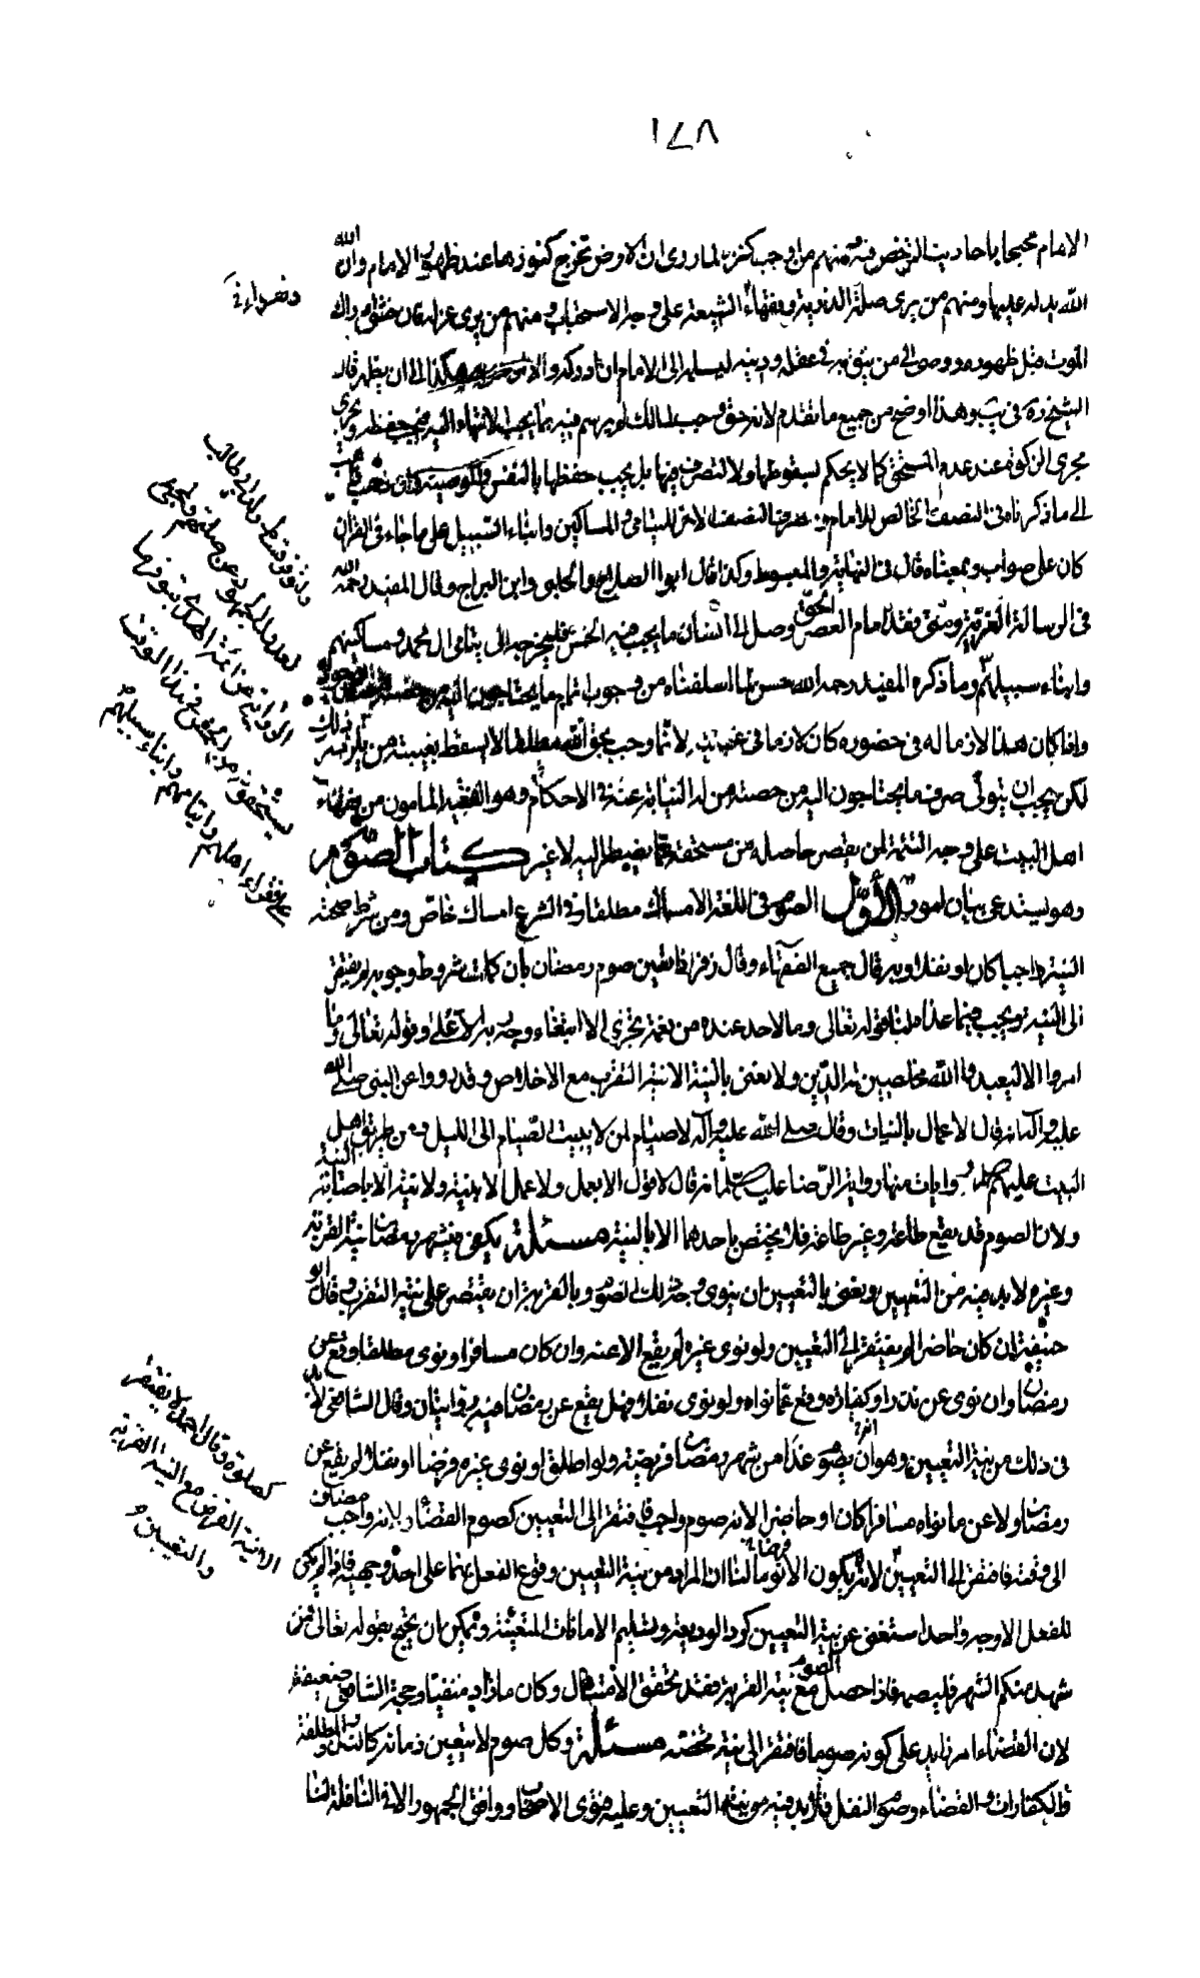 ١٧٨
الامام محتجا باحاديث الترخص فيه ومنهم من اوجب كنزه لما روى ان الارض تخرج كنوزها عند ظهور الامام وان الله
الله يدله عليها ومنهم من يرى صلة الذرية وفقراء الشيعة على وجه الاستحباب ومنهم من يرى عزله فان خشى ادراك
الموت قبل ظهوره ووصى الى من يثق به في عقله ودينه ليسلمه الى الامام ان ادركه والا الى ان يظهر قال
الشيخ ره في يب وهذا اوضح من جميع ما تقدم لانه حق وجب لمالك لم يرسم فيه ما يجب الانتهاء اليه فيجب حفظه وجرى
مجرى الزكوة عند عدم المستحق كما لا يحكم بسقوطها ولا التصرف فيها بل يجب حفظها بالنفس والوصية وان ذهب ذاهب
الى ما ذكرناه في النصف الخالص للامام وصرف النصف الاخر لليتامى والمساكين وابناء السبيل على ما جاء في القران
كان على صواب وبمعناه قال في النهاية والمبسوط وكذا قال ابو الصلاح الحلبى وابن البراج وقال المفيد رحمه الله
في الرسالة الغرية ومتى فقد امام الحق ووصل الى انسان ما يجب فيه الخمس فليخرجه الى يتامى ال محمد ومساكينهم
وابناء سبيلهم وما ذكره المفيد رحمه الله حسن لما اسلفناه من وجوب اتمام ما يحتاجون اليه من حصته
واذا كان هذا لازما له في حضوره كان لازما في غيبته لانما وجب بحق الله مطلقا لا يسقط بغيبة من يلزمه ذلك
لكن يجب ان يتولى صرف ما يحتاجون اليه من حصته من له النيابة عنه في الاحكام وهو الفقيه المامون من فقهاء
اهل البيت على وجه التتمة لمن يقصر حاصله من مستحقه عما يضطر اليه لا غير كتاب الصوم
وهو يستدعى بيان امور الاول الصوم في اللغة الامساك مطلقا وفي الشرع امساك خاص ومن شرط صحته
النية واجبا كان او نفلا وبه قال جميع الفقهاء وقال زفر اذا تعين صوم رمضان بان كملت شروط وجوبه لم يفتقر
الى النية ويجب فيما عداه لنا قوله تعالى وما لاحد عنده من نعمة تجزى الا ابتغاء وجه ربه الاعلى وقوله تعالى وما
امروا الا ليعبدوا الله مخلصين له الدين ولا يعنى بالنية الا نية التقرب مع الاخلاص وقد رووا عن النبى صلى الله
عليه واله انه قال الاعمال بالنيات وقال صلى الله عليه واله لا صيام لمن لا يبيت الصيام الى الليل ومن طريق اهل
البيت عليهم السلام روايات منها رواية الرضا عليه السلام انه قال لا قول الا بعمل ولا عمل الا بنية ولا نية الا باصابة السنة
ولان الصوم قد يقع طاعة وغير طاعة فلا يختص باحدهما الا بالنية مسئلة يكفى في شهر رمضان نية القربة
وغيره لا بد فيه من التعيين ويعنى بالتعيين ان ينوى وجه ذلك الصوم وبالقربة ان يقتصر على نية التقرب وقال ابو
حنيفة ان كان حاضرا لم يفتقر الى التعيين ولو نوى غيره لم يقع الا عنه وان كان مسافرا ونوى مطلقا وقع عن
رمضان وان نوى عن نذر او كفارة وقع عما نواه ولو نوى نفلا فهل يقع عن رمضان فيه روايتان وقال الشافعى لا بد
في ذلك من نية التعيين وهو ان يصوم غدا من شهر رمضان فريضة ولو اطلق او نوى غيره فرضا او نفلا لم يقع عن
رمضان ولا عن ما نواه مسافرا كان او حاضرا لانه صوم واجب فافتقر الى التعيين كصوم القضاء ولانه واجب مضاف
الى وقته فافتقر الى التعيين لنا ان المراد من نية التعيين وقوع الفعل على احد وجهيه فاذا لم يكن
للفعل الا وجه واحد استغنى عن نية التعيين كرد الوديعة وتسليم الامانات المتعينة ويمكن ان يحتج بقوله تعالى فمن
شهد منكم الشهر فليصمه فاذا حصل الصوم مع نية القربة فقد تحقق الامتثال وكان ما زاد منفيا وحجة الشافعى ضعيفة
لان القضاء امر زايد على كونه صوما فافتقر الى نية تخصه مسئلة وكل صوم لا يتعين زمانه كالنذور المطلقة
والكفارات والقضاء وصوم النفل فلا بد فيه من نية التعيين وعليه فتوى الاصحاب ووافق الجمهور الا في النافلة لنا
كصلوة وقال احمد لا يفتقر
الى نية الفرض مع النية القربة
والتعيين